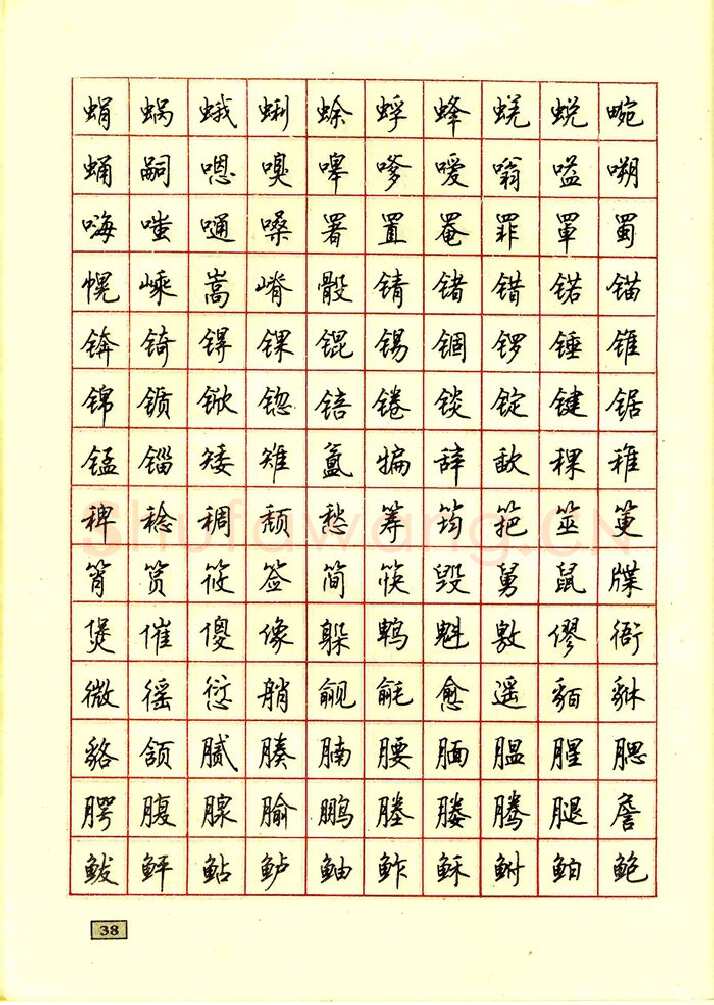 蜎蜗蛾蜊蜍蜉蜂蜣蜕畹
蛹嗣嗯嗅嗥嗲嗳嗡嗌嗍
嗨嗤嗵嗓署置罨罪罩蜀
幌嵊嵩嵴骰锖锗错锘锚
锛锜锝锞锟锡锢锣锤锥
锦锧锨锪锫锩锬锭键锯
锰锱矮雉氲犏辞歃稞稚
稗稔稠颓愁筹筠筢筮筻
筲筼筱签简筷毁舅鼠牒
煲催傻像躲鹎魁敫僇衙
微徭愆艄觎毹愈遥貊貅
貉颔腻腠腩腰腼腽腥腮
腭腹腺腧鹏塍媵腾腿詹
鲅鲆鲇鲈鲉鲊稣鲋鲌鲍
38
Shufawang.CN